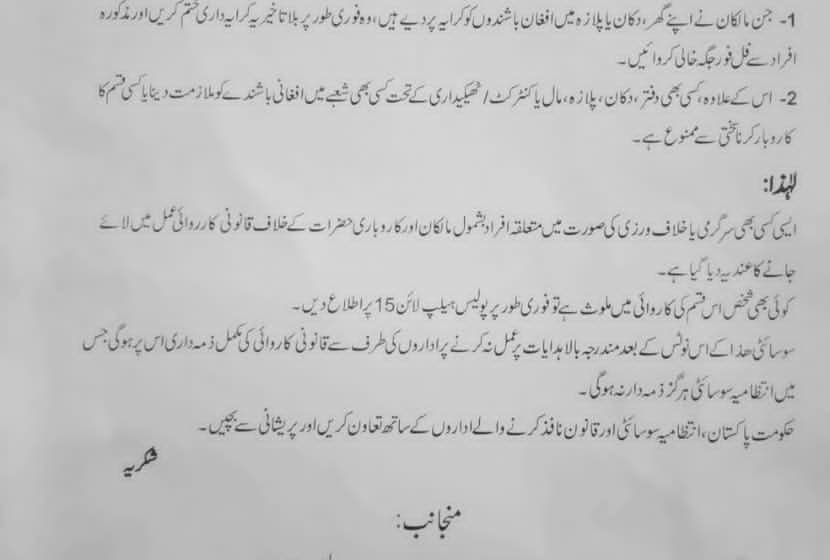 1- جن مالکان نے اپنے گھر، دکان یا پلازہ میں افغان باشندوں کو کرایہ پر دیے ہیں، وہ فوری طور پر بلا تاخیر یہ کرایہ داری ختم کریں اور مذکورہ
افراد سے فل فور جگہ خالی کروائیں۔
2- اس کے علاوہ، کسی بھی دفتر، دکان، پلازہ، مال یا کنٹرکٹ / ٹھیکیداری کے تحت کسی بھی شعبے میں افغانی باشندے کو ملازمت دینا یا کسی قسم کا
کاروبار کرنا سختی سے ممنوع ہے۔
لہٰذا:
ایسی کسی بھی سرگرمی یا خلاف ورزی کی صورت میں متعلقہ افراد بشمول مالکان اور کاروباری حضرات کے خلاف قانونی کارروائی عمل میں لائے
جانے کا عندیہ دیا گیا ہے۔
کوئی بھی شخص اس قسم کی کاروائی میں ملوث ہے تو فوری طور پر پولیس ہیلپ لائن 15 پر اطلاع دیں۔
سوسائٹی ھذا کے اس نوٹس کے بعد مندرجہ بالا ہدایات پر عمل نہ کرنے پر اداروں کی طرف سے قانونی کاروائی کی مکمل ذمہ داری اس پر ہوگی جس
میں انتظامیہ سوسائٹی ہرگز ذمہ دار نہ ہوگی۔
حکومت پاکستان، انتظامیہ سوسائٹی اور قانون نافذ کرنے والے اداروں کے ساتھ تعاون کریں اور پریشانی سے بچیں۔
شکریہ
منجانب: